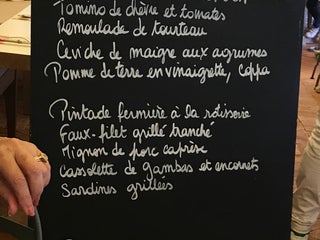 Tomino de chèvre et tomates
Remoulade de tourteau
Ceviche de maigre aux agrumes
Pomme de terre en vinaigrette, coppa
Pintade fermière à la rotisserie
Faux-filet grillé tranché
Mignon de porc caprèse
Cassolette de Gambas et encornets
Sardines grillées